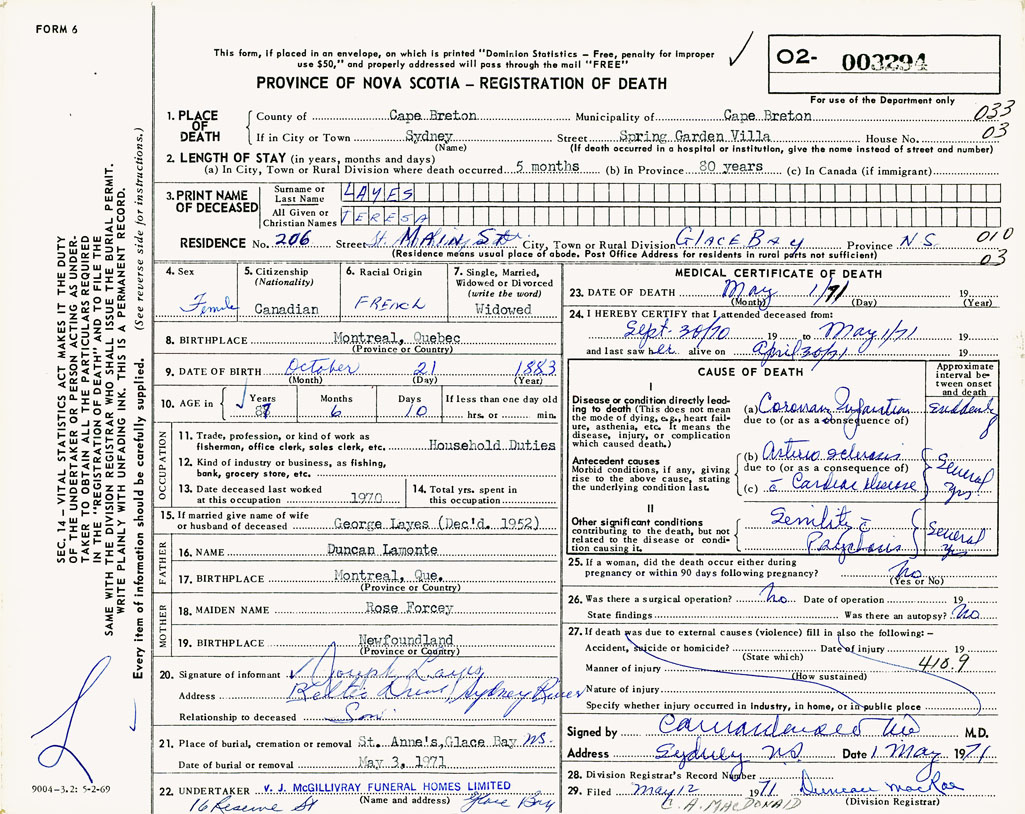 FORM 6
This form, if placed in an envelope, on which is printed "Dominion Statistics – Free, penalty for improper
use $50," and properly addressed will pass through the mail "FREE"
PROVINCE OF NOVA SCOTIA – REGISTRATION OF DEATH
02- 003294
For use of the Department only
033
03
1. PLACE OF DEATH
County of Cape Breton Municipality of Cape Breton
If in City or Town Sydney Street Spring Garden Villa House No.
(Name) (If death occurred in a hospital or institution, give the name instead of street and number)
2. LENGTH OF STAY (in years, months and days)
(a) In City, Town or Rural Division where death occurred 5 months (b) In Province 80 years (c) In Canada (if immigrant)
3. PRINT NAME OF DECEASED
Surname or Last Name LAYES
All Given or Christian Names TERESA
RESIDENCE No. 206 Street St. MAIN St. City, Town or Rural Division GLACE BAY Province N.S.
(Residence means usual place of abode. Post Office Address for residents in rural parts not sufficient)
010
03
4. Sex Female
5. Citizenship (Nationality) Canadian
6. Racial Origin FRENCH
7. Single, Married, Widowed or Divorced (write the word) Widowed
8. BIRTHPLACE Montreal, Quebec
(Province or Country)
9. DATE OF BIRTH October 21 1883
(Month) (Day) (Year)
10. AGE in Years 87 Months 6 Days 10 If less than one day old hrs. or min.
OCCUPATION
11. Trade, profession, or kind of work as fisherman, office clerk, sales clerk, etc. Household Duties
12. Kind of industry or business, as fishing, bank, grocery store, etc.
13. Date deceased last worked at this occupation 1970
14. Total yrs. spent in this occupation
15. If married give name of wife or husband of deceased George Layes (Dec'd. 1952)
FATHER
16. NAME Duncan Lamonte
17. BIRTHPLACE Montreal, Que.
(Province or Country)
MOTHER
18. MAIDEN NAME Rose Forcey
19. BIRTHPLACE Newfoundland
(Province or Country)
20. Signature of informant Joseph Layes
Address Drive, Sydney River
Relationship to deceased Son
21. Place of burial, cremation or removal St. Anne's, Glace Bay NS.
Date of burial or removal May 3, 1971
22. UNDERTAKER V. J. McGILLIVRAY FUNERAL HOMES LIMITED
(Name and address)
16 Reserve St Glace Bay
MEDICAL CERTIFICATE OF DEATH
23. DATE OF DEATH May 1/71 19
(Month) (Day) (Year)
24. I HEREBY CERTIFY that I attended deceased from:
Sept. 30/70 19 to May 1/71
and last saw her alive on April 30/71 19
CAUSE OF DEATH
Approximate interval between onset and death
I
Disease or condition directly leading to death (This does not mean the mode of dying, e.g., heart failure, asthenia, etc. It means the disease, injury, or complication which caused death.)
(a) Coronary Infarction Suddenly
due to (or as a consequence of)
Antecedent causes
Morbid conditions, if any, giving rise to the above cause, stating the underlying condition last.
(b) Arterio sclerosis
due to (or as a consequence of)
(c) c̄ Cardiac disease
Several yrs.
II
Other significant conditions contributing to the death, but not related to the disease or condition causing it.
Senility c̄
Psychosis
Several yrs
25. If a woman, did the death occur either during
pregnancy or within 90 days following pregnancy? No
(Yes or No)
26. Was there a surgical operation? No Date of operation 19
State findings Was there an autopsy? No
27. If death was due to external causes (violence) fill in also the following:–
Accident, suicide or homicide? Date of injury 19
(State which)
410.9
Manner of injury
(How sustained)
Nature of injury
Specify whether injury occurred in industry, in home, or in public place
Signed by M.D.
Address Sydney NS Date 1 May 1971
28. Division Registrar's Record Number
29. Filed May 12 1971 Duncan MacRae
(Division Registrar)
C. A. MACDONALD
SEC. 14 – VITAL STATISTICS ACT MAKES IT THE DUTY
OF THE UNDERTAKER OR PERSON ACTING AS UNDER-
TAKER TO OBTAIN ALL THE PARTICULARS REQUIRED
IN THE "REGISTRATION OF DEATH" AND TO FILE THE
SAME WITH THE DIVISION REGISTRAR WHO SHALL ISSUE THE BURIAL PERMIT.
WRITE PLAINLY WITH UNFADING INK. THIS IS A PERMANENT RECORD.
Every item of information should be carefully supplied. (See reverse side for instructions.)
9004-3.2: 5-2-69